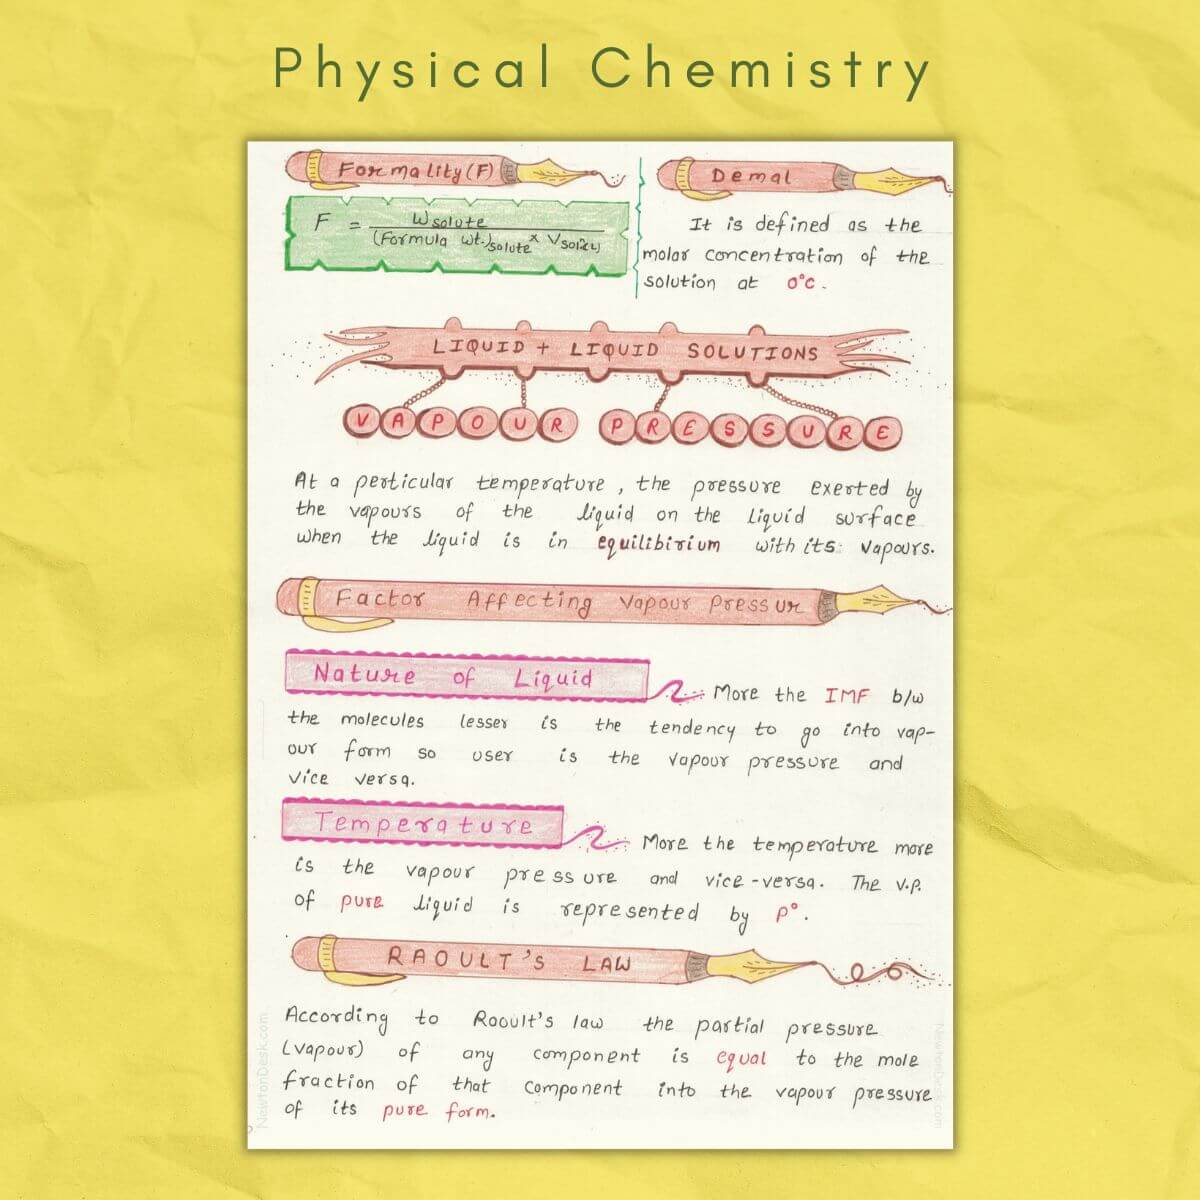 Physical Chemistry
Formality (F)
F = Wsolute / (Formula wt.)solute × Vsol(L)
Demal
It is defined as the
molar concentration of the
solution at 0°c.
LIQUID + LIQUID SOLUTIONS
VAPOUR PRESSURE
At a perticular temperature, the pressure exerted by
the vapours of the liquid on the liquid surface
when the liquid is in equilibirium with its vapours.
Factor Affecting Vapour Pressur
Nature of Liquid
More the IMF b/w
the molecules lesser is the tendency to go into vap-
our form so user is the vapour pressure and
vice versa.
Temperature
More the temperature more
is the vapour pressure and vice-versa. The v.p.
of pure liquid is represented by P°.
RAOULT'S LAW
According to Raoult's law the partial pressure
(vapour) of any component is equal to the mole
fraction of that component into the vapour pressure
of its pure form.
NewtonDesk.com
NewtonDesk.com